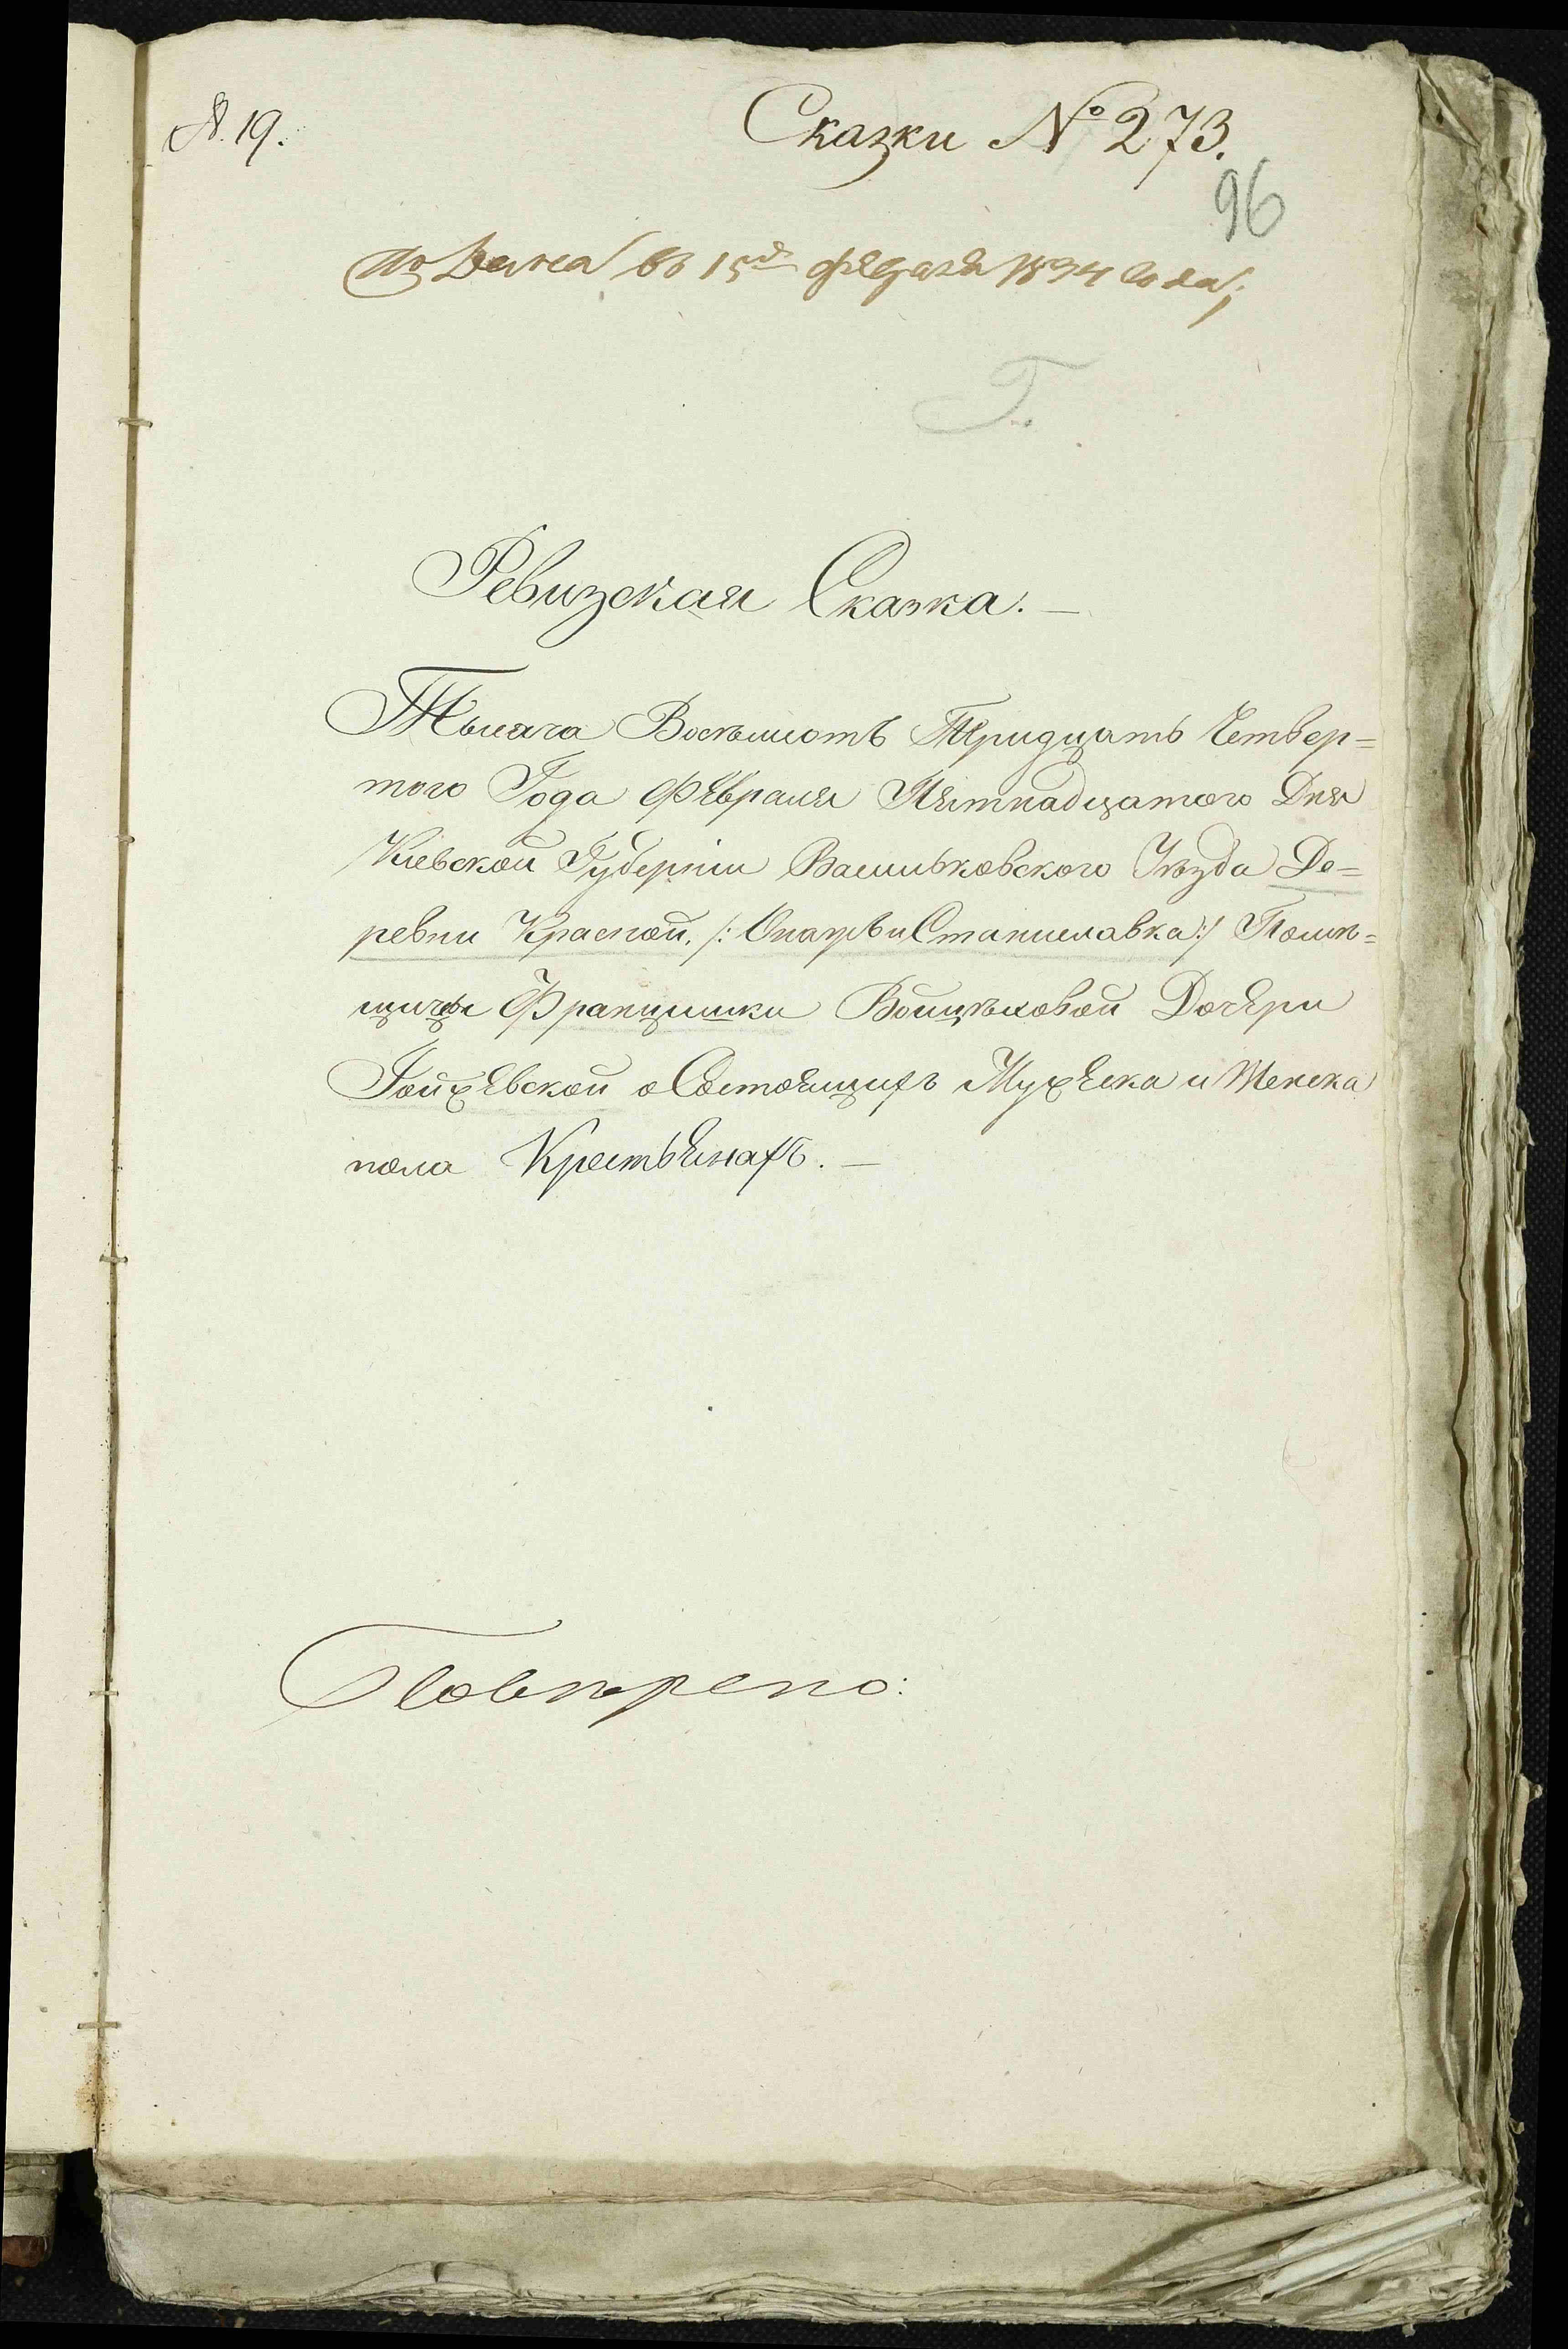 № 19.
Сказки № 273.
96
Подана въ 15й февраля 1834 года;
Ревизская Сказка. —
Тысяча Восемьсотъ Тридцать Четвер=
того Года Февраля Пятнадцатого Дня
Кіевской Губерніи Васильковского Уѣзда Де=
ревни Красной. /: Онаже и Станиславка :/ Помѣ=
щицы Францишки Войцѣховой Дочери
Гойжевской о Состоящихъ Мужеска и Женска
пола Крестьянахъ. —